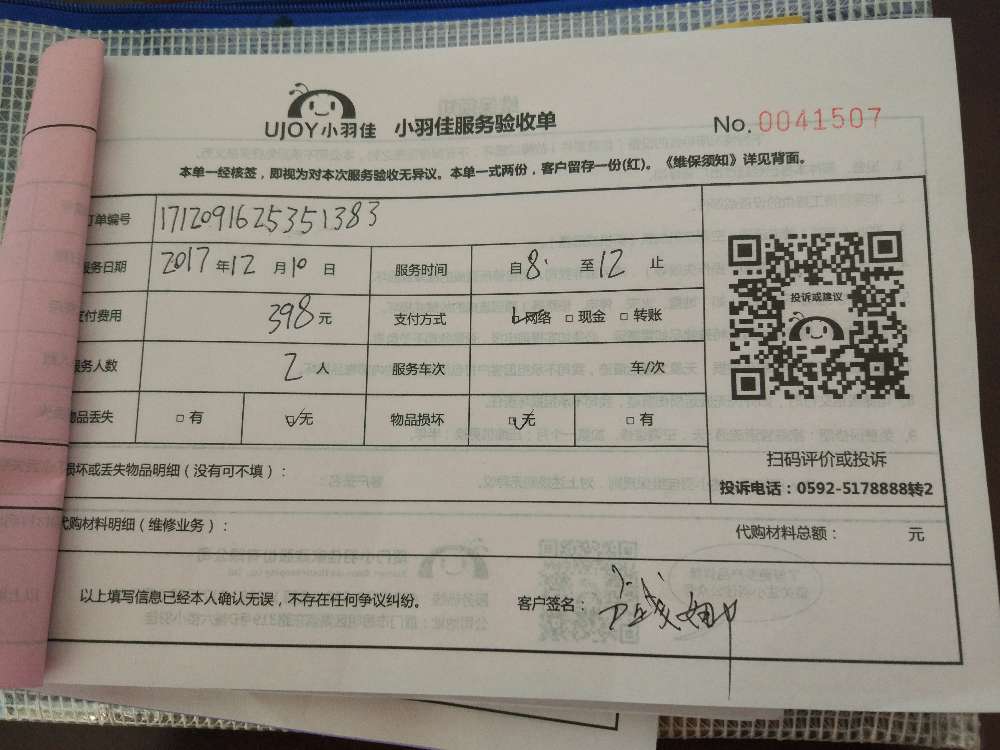 UJOY小羽佳 小羽佳服务验收单 No. 0041507
本单一经核签，即视为对本次服务验收无异议。本单一式两份，客户留存一份(红)。《维保须知》详见背面。
订单编号 1712091625351383
服务日期 2017年12月10日 服务时间 自8:至12止
支付费用 398元 支付方式 网络 现金 转账
服务人数 2人 服务车次 车/次
物品丢失 有 无 物品损坏 无 有
投诉或建议
扫码评价或投诉
投诉电话：0592-5178888转2
损坏或丢失物品明细（没有可不填）：
代购材料明细（维修业务）： 代购材料总额： 元
以上填写信息已经本人确认无误，不存在任何争议纠纷。 客户签名：